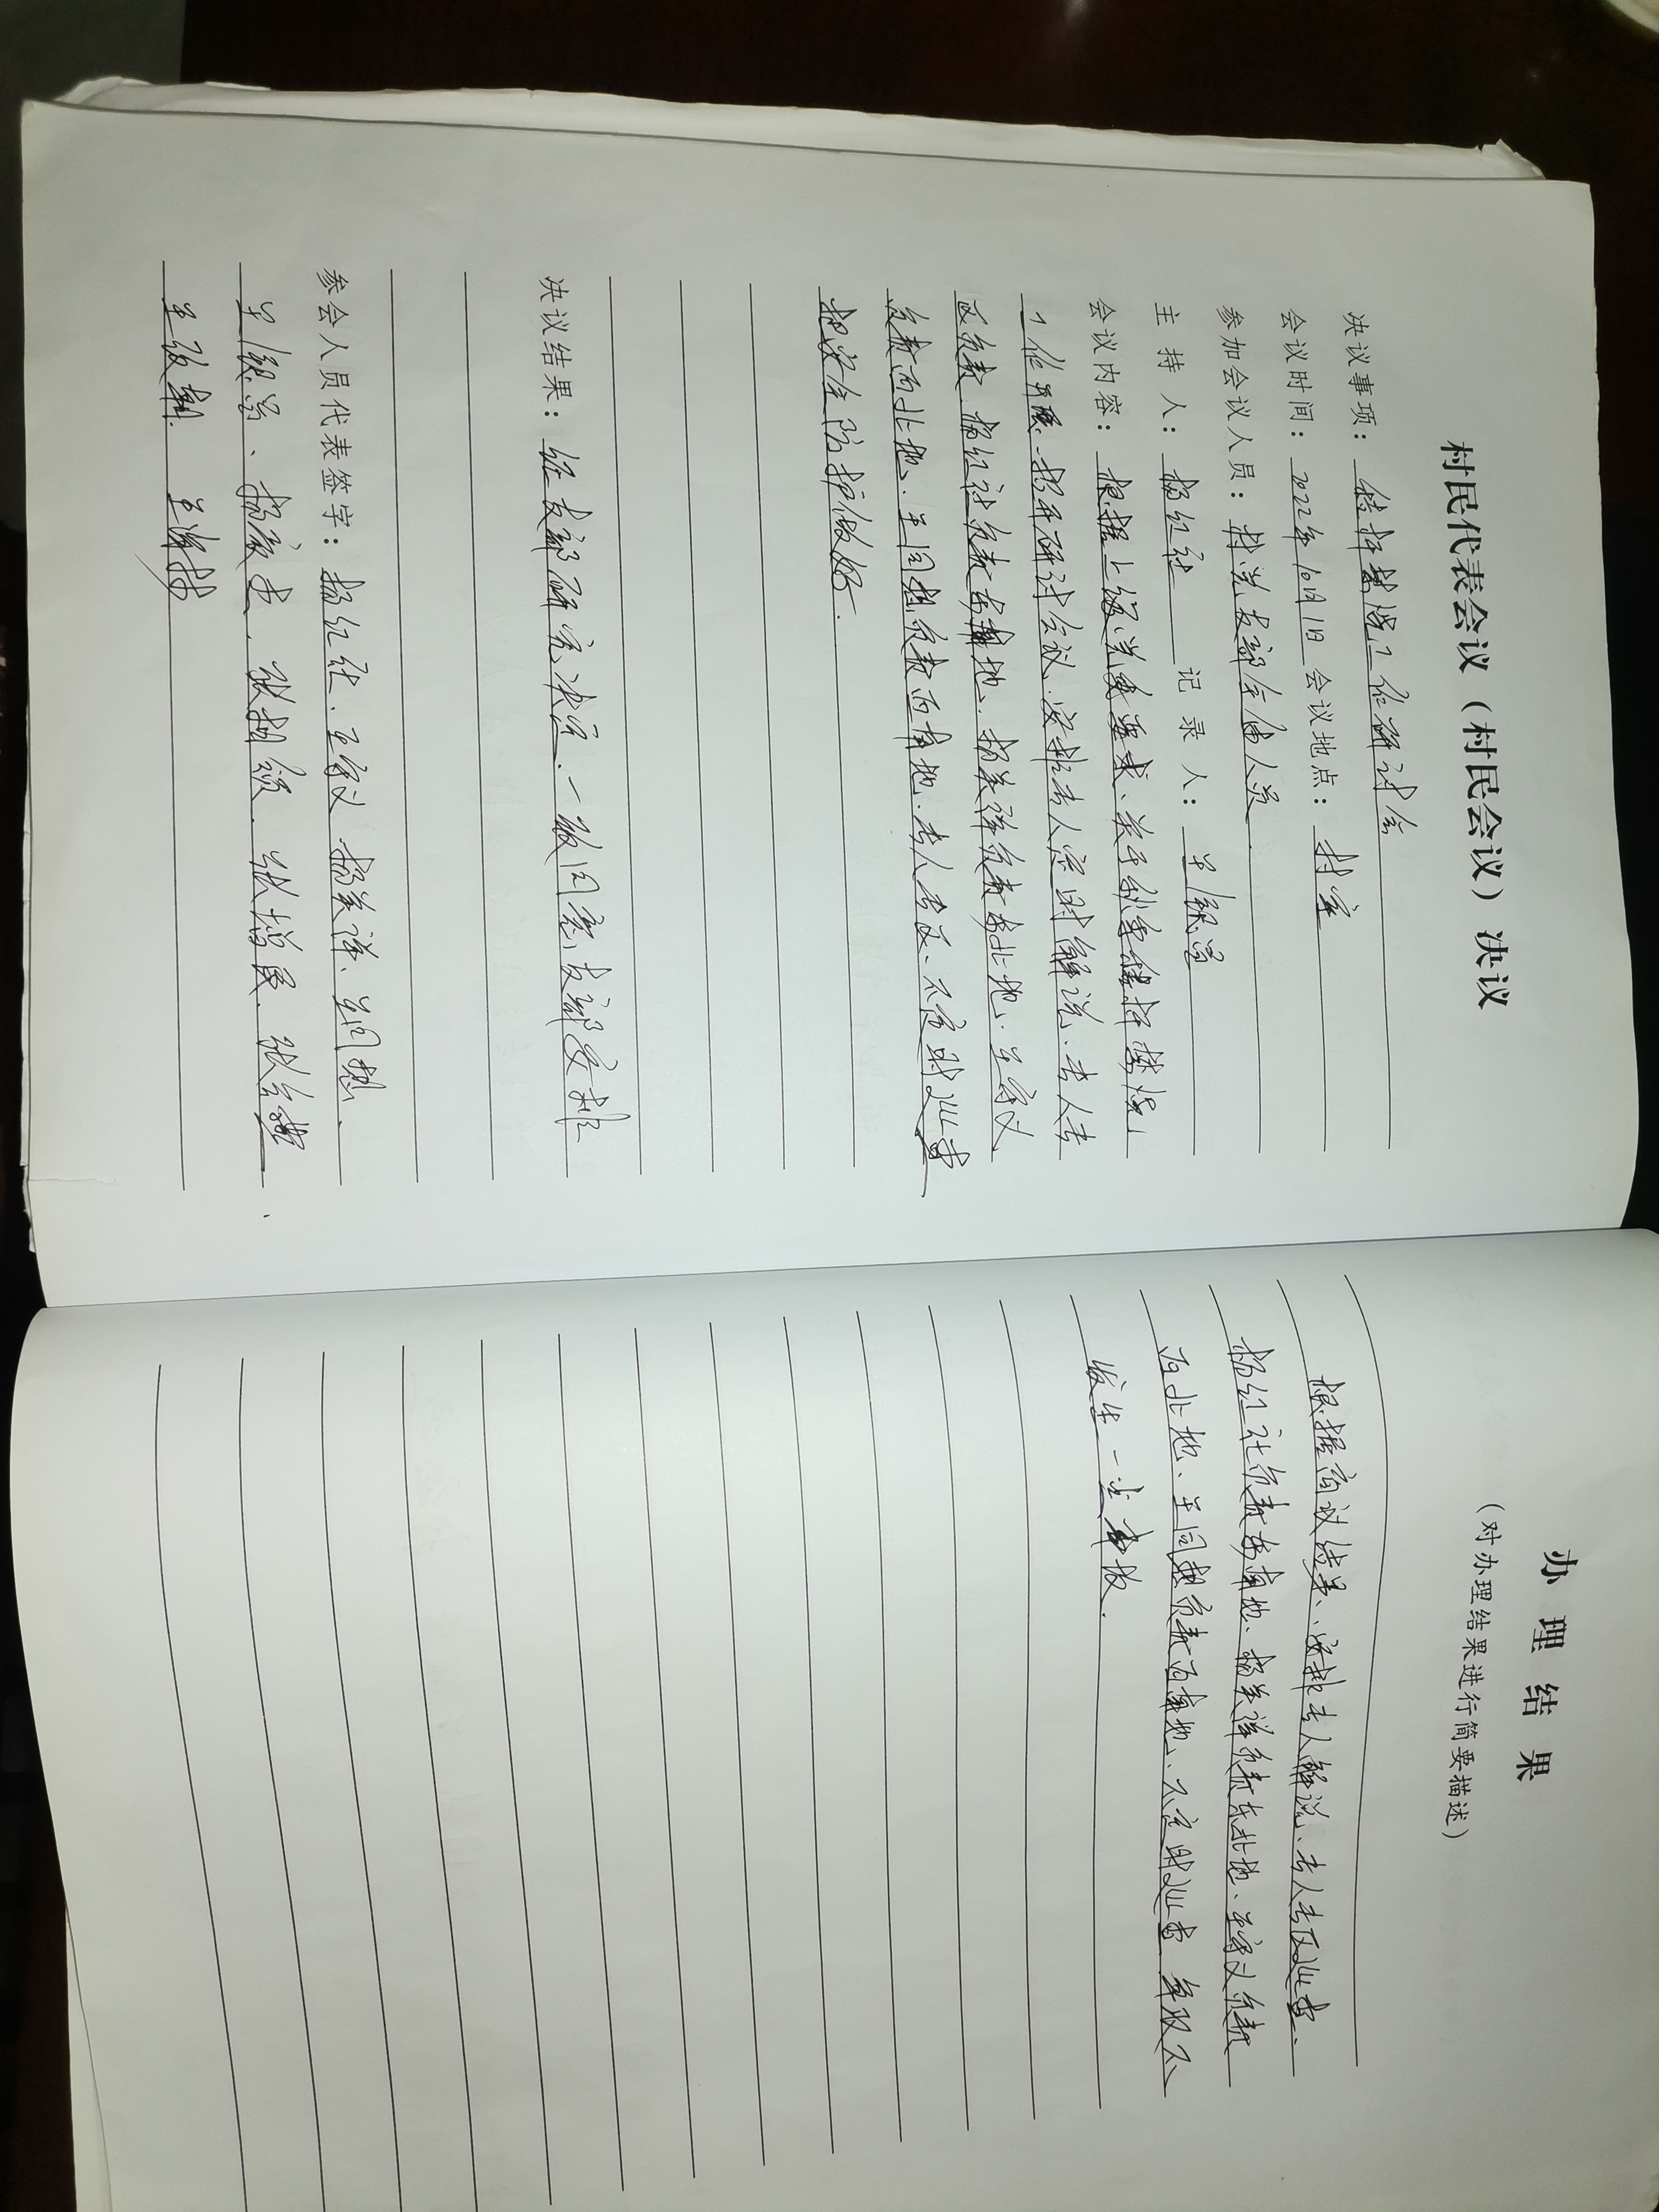 村民代表会议（村民会议）决议
决议事项：秸秆禁烧工作研讨会
会议时间：2022年10月1日 会议地点：村室
参加会议人员：村党支部全体人员.
主持人：杨红社 记录人：王银昌
会议内容：根据上级党委要求、关于秋季秸秆禁烧
工作开展.招开研讨会议.安排专人定时解说.专人专
区负责.杨红社负责东南地.杨关祥负责东北地.王守义
负责西北地、王同想负责西南地.专人专区、不定时巡查
把安全防护做好.
决议结果：经支部研究决定.一致同意支部安排
参会人员代表签字：杨红社.王守义 杨关祥、王同想.
王银昌.杨.张相领.张增民.张合
王改朝. 王海
办理结果
（对办理结果进行简要描述）
根据商议结果、安排专人解说、专人专区巡查.
杨红社负责东南地、杨关祥负责东北地、王守义负责
西北地、王同想负责西南地、不定时巡查 争取不
发生一点事故.